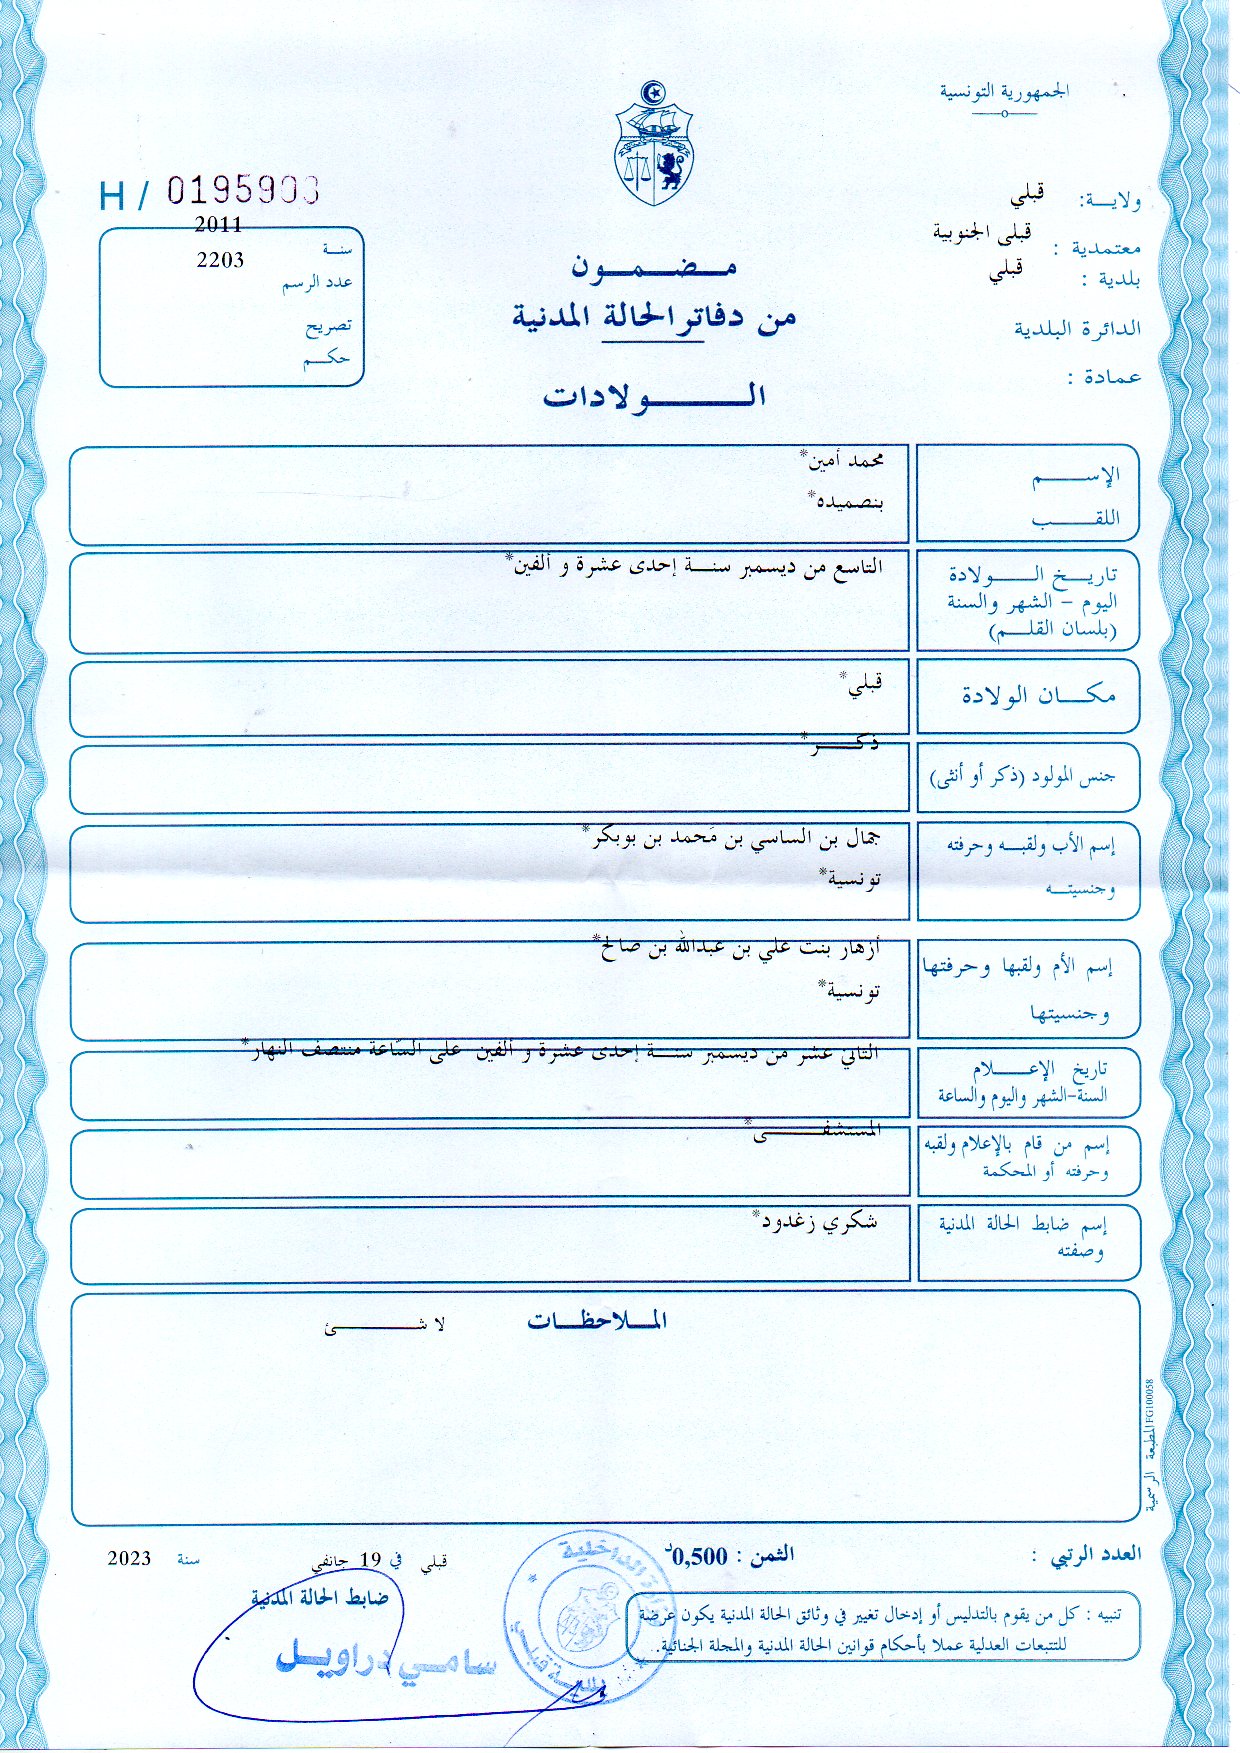 الجمهورية التونسية
H / 0195903
ولايـــة: قبلي
معتمدية : قبلى الجنوبية
بلدية : قبلي
الدائرة البلدية
عمادة :
2011
سنـــة
2203
عدد الرسم
تصريح
حكــم
مــضــمــون
من دفاتر الحالة المدنية
الـــــولادات
الإســـــم محمد أمين*
اللقـــب بنصميده*
تاريــخ الـــولادة التاسع من ديسمبر سنــة إحدى عشرة و ألفين*
اليوم - الشهر والسنة
(بلسان القلــم)
مكــان الولادة قبلي*
جنس المولود (ذكر أو أنثى) ذكـــر*
إسم الأب ولقبــه وحرفته جمال بن الساسي بن مَحمد بن بوبكر*
وجنسيتــه تونسية*
إسم الأم ولقبها وحرفتها أزهار بنت علي بن عبدالله بن صالح*
وجنسيتها تونسية*
تاريخ الإعـــلام الثاني عشر من ديسمبر سنــة إحدى عشرة و ألفين على السّاعة منتصف النهار*
السنة-الشهر واليوم والساعة
إسم من قام بالإعلام ولقبه المستشفـــى*
وحرفته أو المحكمة
إسم ضابط الحالة المدنية شكري زغدود*
وصفته
المــلاحظــات
لا شــــئ
المطبعة الرسمية FG100058
العدد الرتبي :
الثمن : 0,500د
قبلي في 19 جانفي سنة 2023
ضابط الحالة المدنية
سامــي دراويــل
تنبيه : كل من يقوم بالتدليس أو إدخال تغيير في وثائق الحالة المدنية يكون عرضة
للتتبعات العدلية عملا بأحكام قوانين الحالة المدنية والمجلة الجنائية.
وزارة الداخلية
بلديــة قبلــي